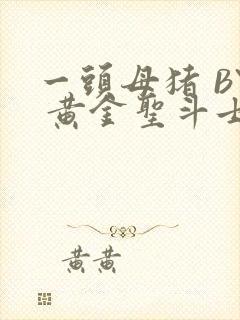 一頭母猪 BY
黄金聖斗士
黄黄